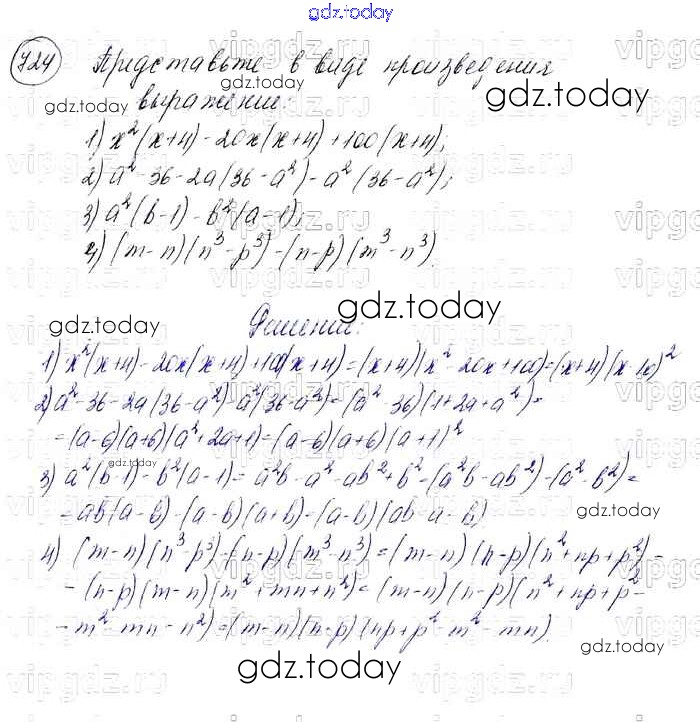 gdz.today
724 Представьте в виде произведения
gdz.today gdz.today
выражение:
gdz.today
1) x²(x+4) - 20x(x+4) + 100(x+4);
2) a² - 36 - 2a(36 - a²) - a²(36 - a²);
3) a²(b-1) - b²(a-1);
4) (m-n)(n³-p³) - (n-p)(m³-n³)
gdz.today
gdz.today
Решение:
1) x²(x+4) - 20x(x+4) + 100(x+4) = (x+4)(x² - 20x + 100) = (x+4)(x-10)²
2) a² - 36 - 2a(36 - a²) - a²(36 - a²) = (a² - 36)(1 + 2a + a²) =
= (a-6)(a+6)(a² + 2a + 1) = (a-6)(a+6)(a+1)²
gdz.today
3) a²(b-1) - b²(a-1) = a²b - a² - ab² + b² = (a²b - ab²) - (a² - b²) =
= ab(a-b) - (a-b)(a+b) = (a-b)(ab - a - b)
gdz.today
4) (m-n)(n³-p³) - (n-p)(m³-n³) = (m-n)(n-p)(n² + np + p²) -
- (n-p)(m-n)(m² + mn + n²) = (m-n)(n-p)(n² + np + p² -
- m² - mn - n²) = (m-n)(n-p)(np + p² - m² - mn).
gdz.today
gdz.today